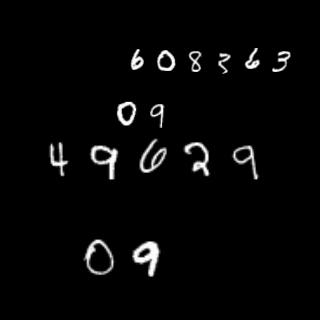 608363
09
49629
09